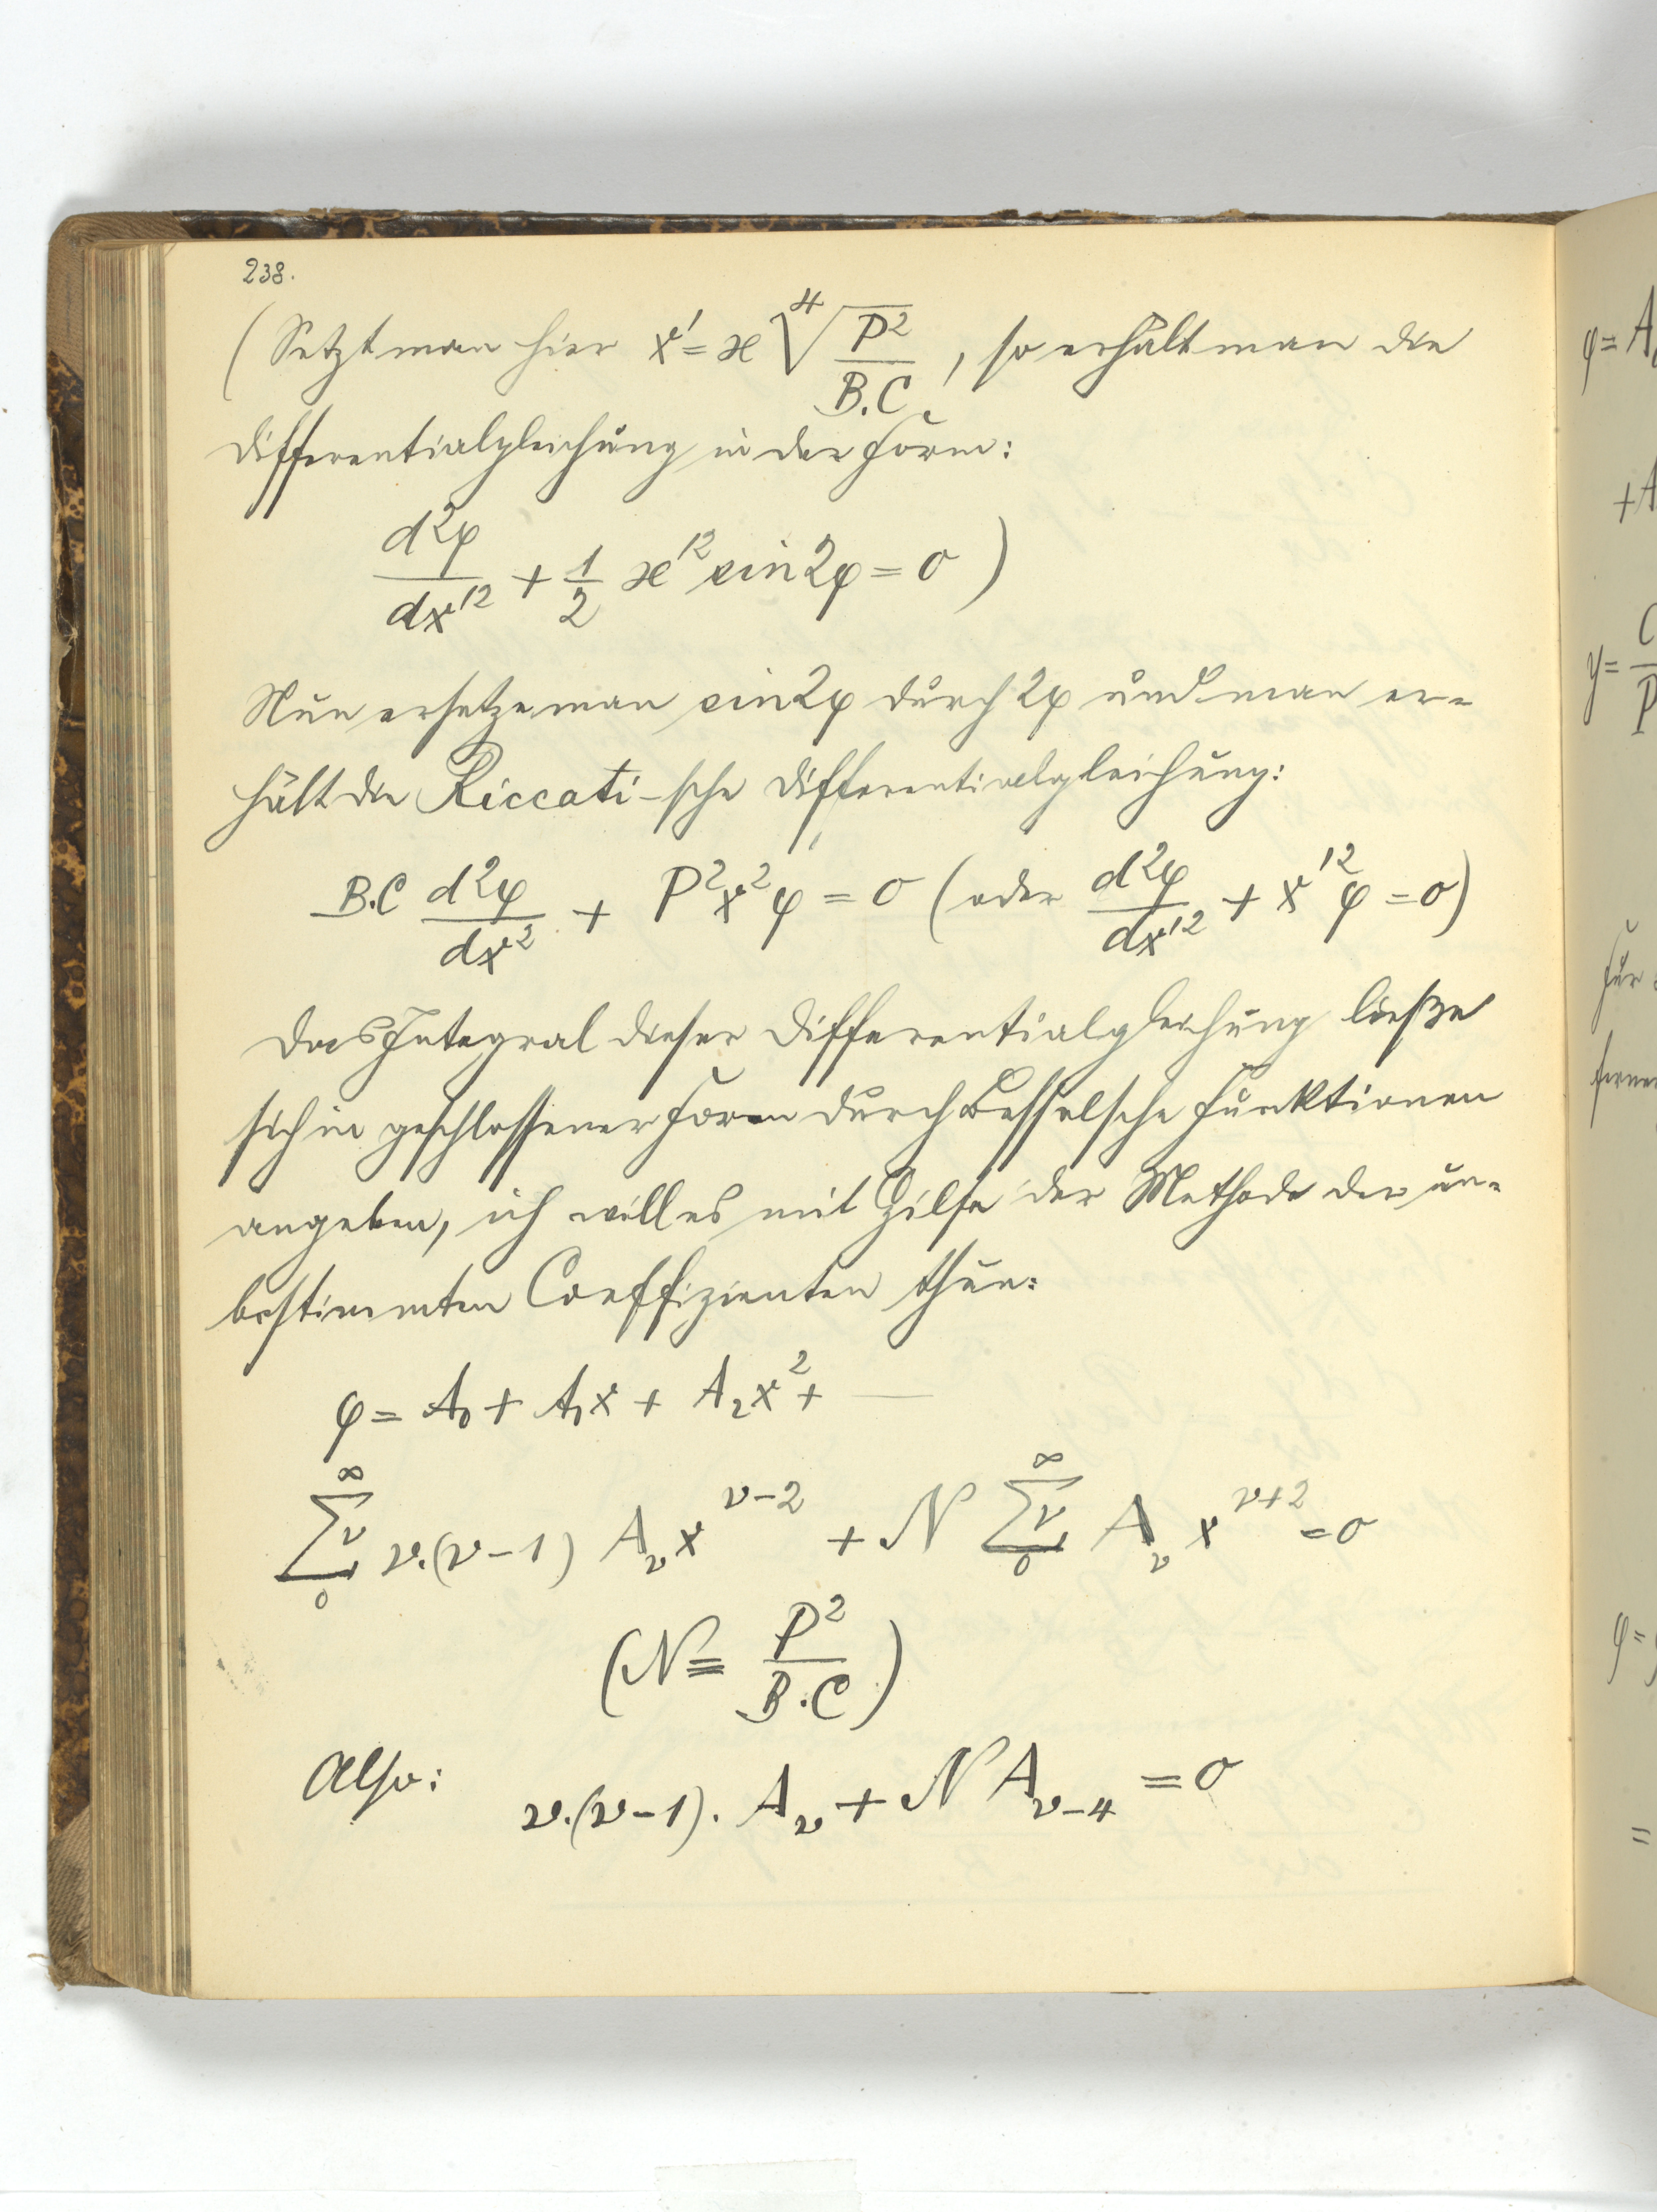 238.
(Setzt man hier x' = x ∜(P²/B.C), so erhält man die
Differentialgleichung in der Form:
d²φ/dx'² + 1/2 x'² sin 2φ = 0)
Nun ersetze man sin 2φ durch 2φ und man er=
hält die Riccati-sche Differentialgleichung:
B.C d²φ/dx² + P²x²φ = 0 (oder d²φ/dx'² + x'²φ = 0)
Das Integral dieser Differentialgleichung ließe
sich in geschlossener Form durch Besselsche Funktionen
angeben, ich will es mit Hilfe der Methode der un=
bestimmten Coeffizienten thun:
φ = A₀ + A₁x + A₂x² + —
∞Σν0 ν.(ν-1) A_ν x^(ν-2) + N ∞Σν0 A_ν x^(ν+2) = 0
(N = P²/B.C)
Also: ν.(ν-1). A_ν + N A_(ν-4) = 0
φ = A
+ A
y = C/P
Für
ferner
φ =
=